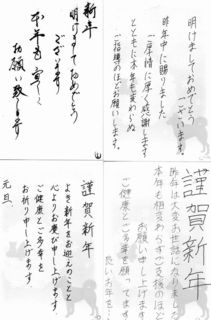 新年
明けましておめでとう
ございます
本年も宜しく
お願い致します
明けましておめでとう
ございます。
昨年中に賜りました
ご厚情に厚く感謝します。
とともに本年も変わらぬ
ご指導のほどお願いします。
謹賀新年
よき新年をお迎えのことと
心よりお慶び申し上げます
ご健康とご多幸を
お祈り申し上げます
元旦
謹賀新年
昨年は大変お世話になりました
本年も相変わらずご支援のほど
お願い申し上げます
ご健康とご多幸を願ってます